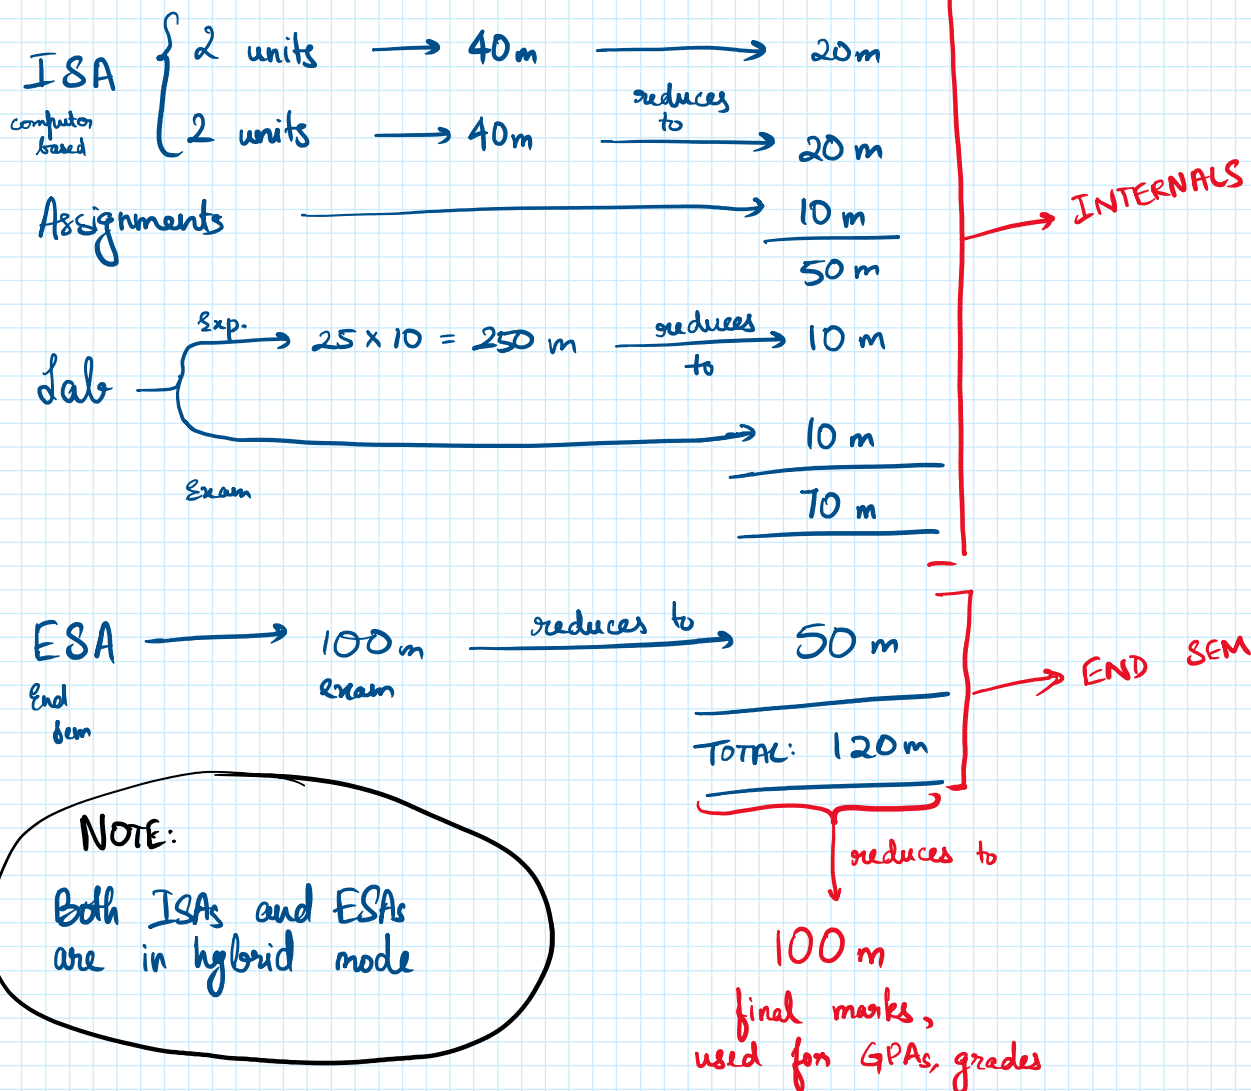 ISA { 2 units → 40m → 20m
computer based
2 units → 40m reduces to → 20 m
Assignments → 10 m
50 m
INTERNALS
Lab
Exp. → 25 × 10 = 250 m reduces to → 10 m
Exam → 10 m
70 m
ESA → 100m reduces to → 50 m
End Sem
Exam
END SEM
TOTAL: 120m
reduces to
100 m
final marks,
used for GPAs, grades
NOTE:
Both ISAs and ESAs
are in hybrid mode